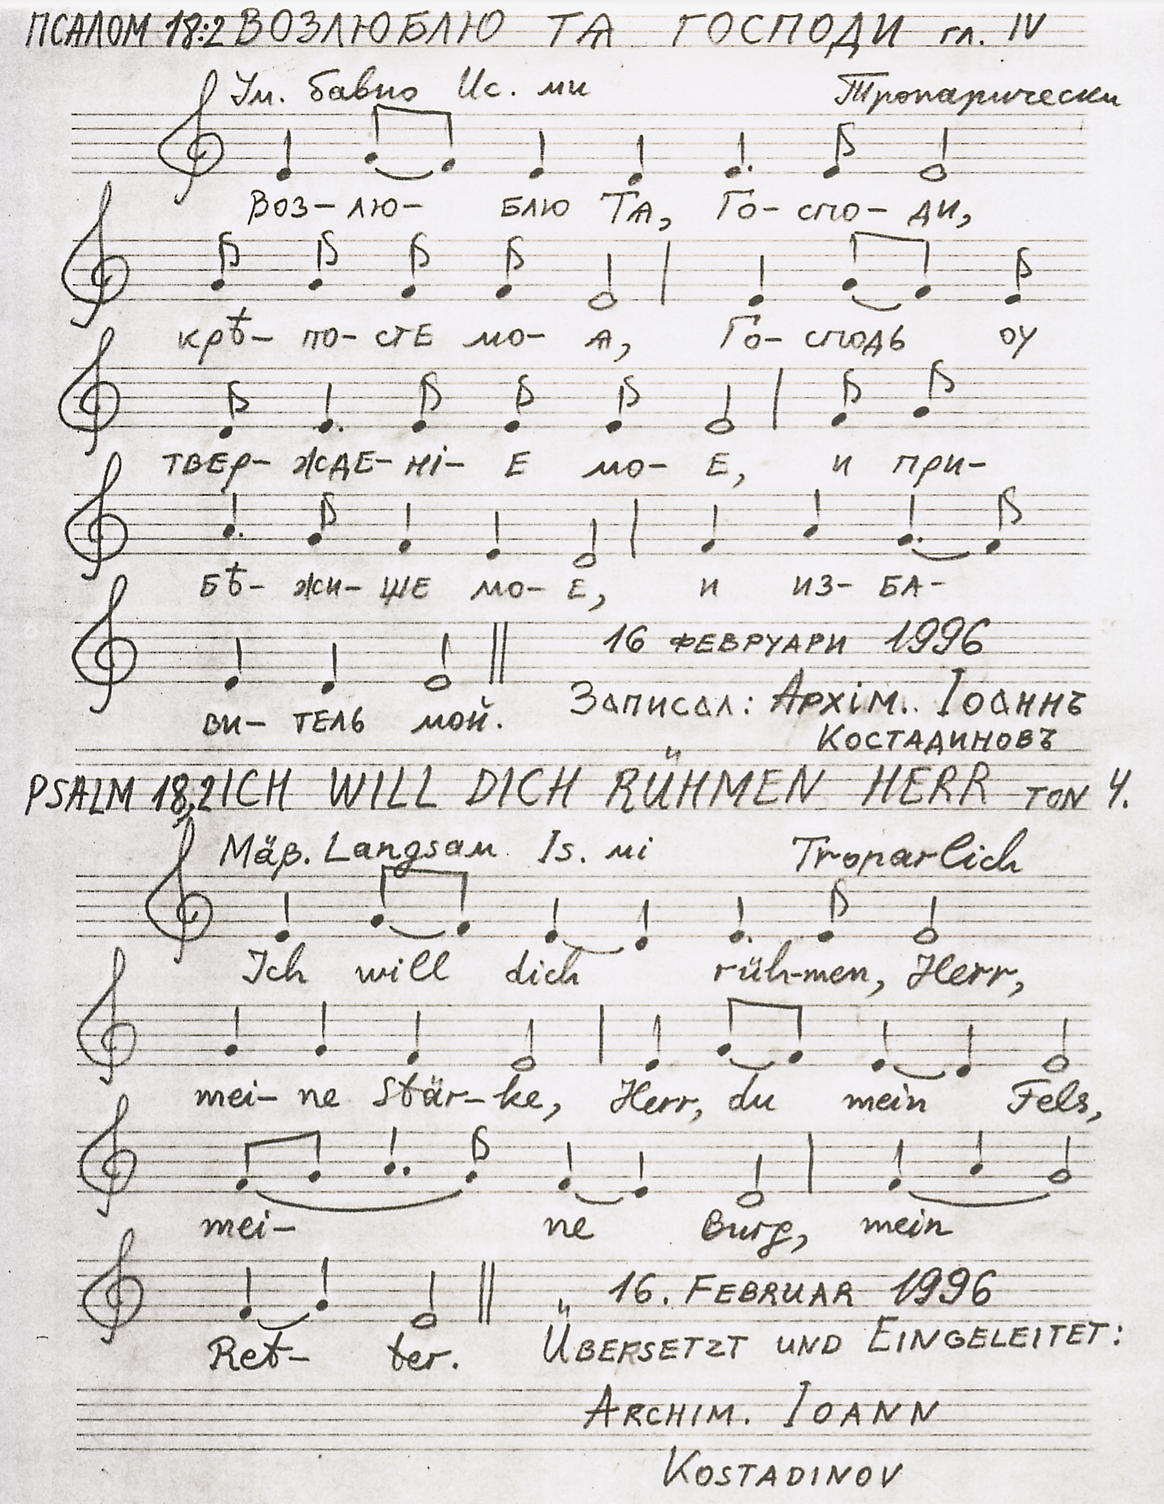 ПСАЛОМ 18:2 ВОЗЛЮБЛЮ ТѦ ГОСПОДИ гл. IV
Ум. бавно Ис. ми Тропарически
ВОЗ- ЛЮ- БЛЮ ТѦ, ГО- СПО- ДИ,
КРѢ- ПО- СТЕ МО- Ѧ, ГО- СПОДЬ ОУ
ТВЕР- ЖДЕ- НІ- Е МО- Е, И ПРИ-
БѢ- ЖИ- ЩЕ МО- Е, И ИЗ- БА-
ВИ- ТЕЛЬ МОЙ. 16 ФЕВРУАРИ 1996
ЗАПИСАЛ: АРХІМ. ІОАННЪ
КОСТАДИНОВЪ
PSALM 18,2 ICH WILL DICH RÜHMEN HERR TON 4.
Mäß. Langsam Is. mi Troparlich
Ich will dich rüh-men, Herr,
mei- ne Stär- ke, Herr, du mein Fels,
mei- ne Burg, mein
Ret- ter. 16. FEBRUAR 1996
ÜBERSETZT UND EINGELEITET:
ARCHIM. IOANN
KOSTADINOV